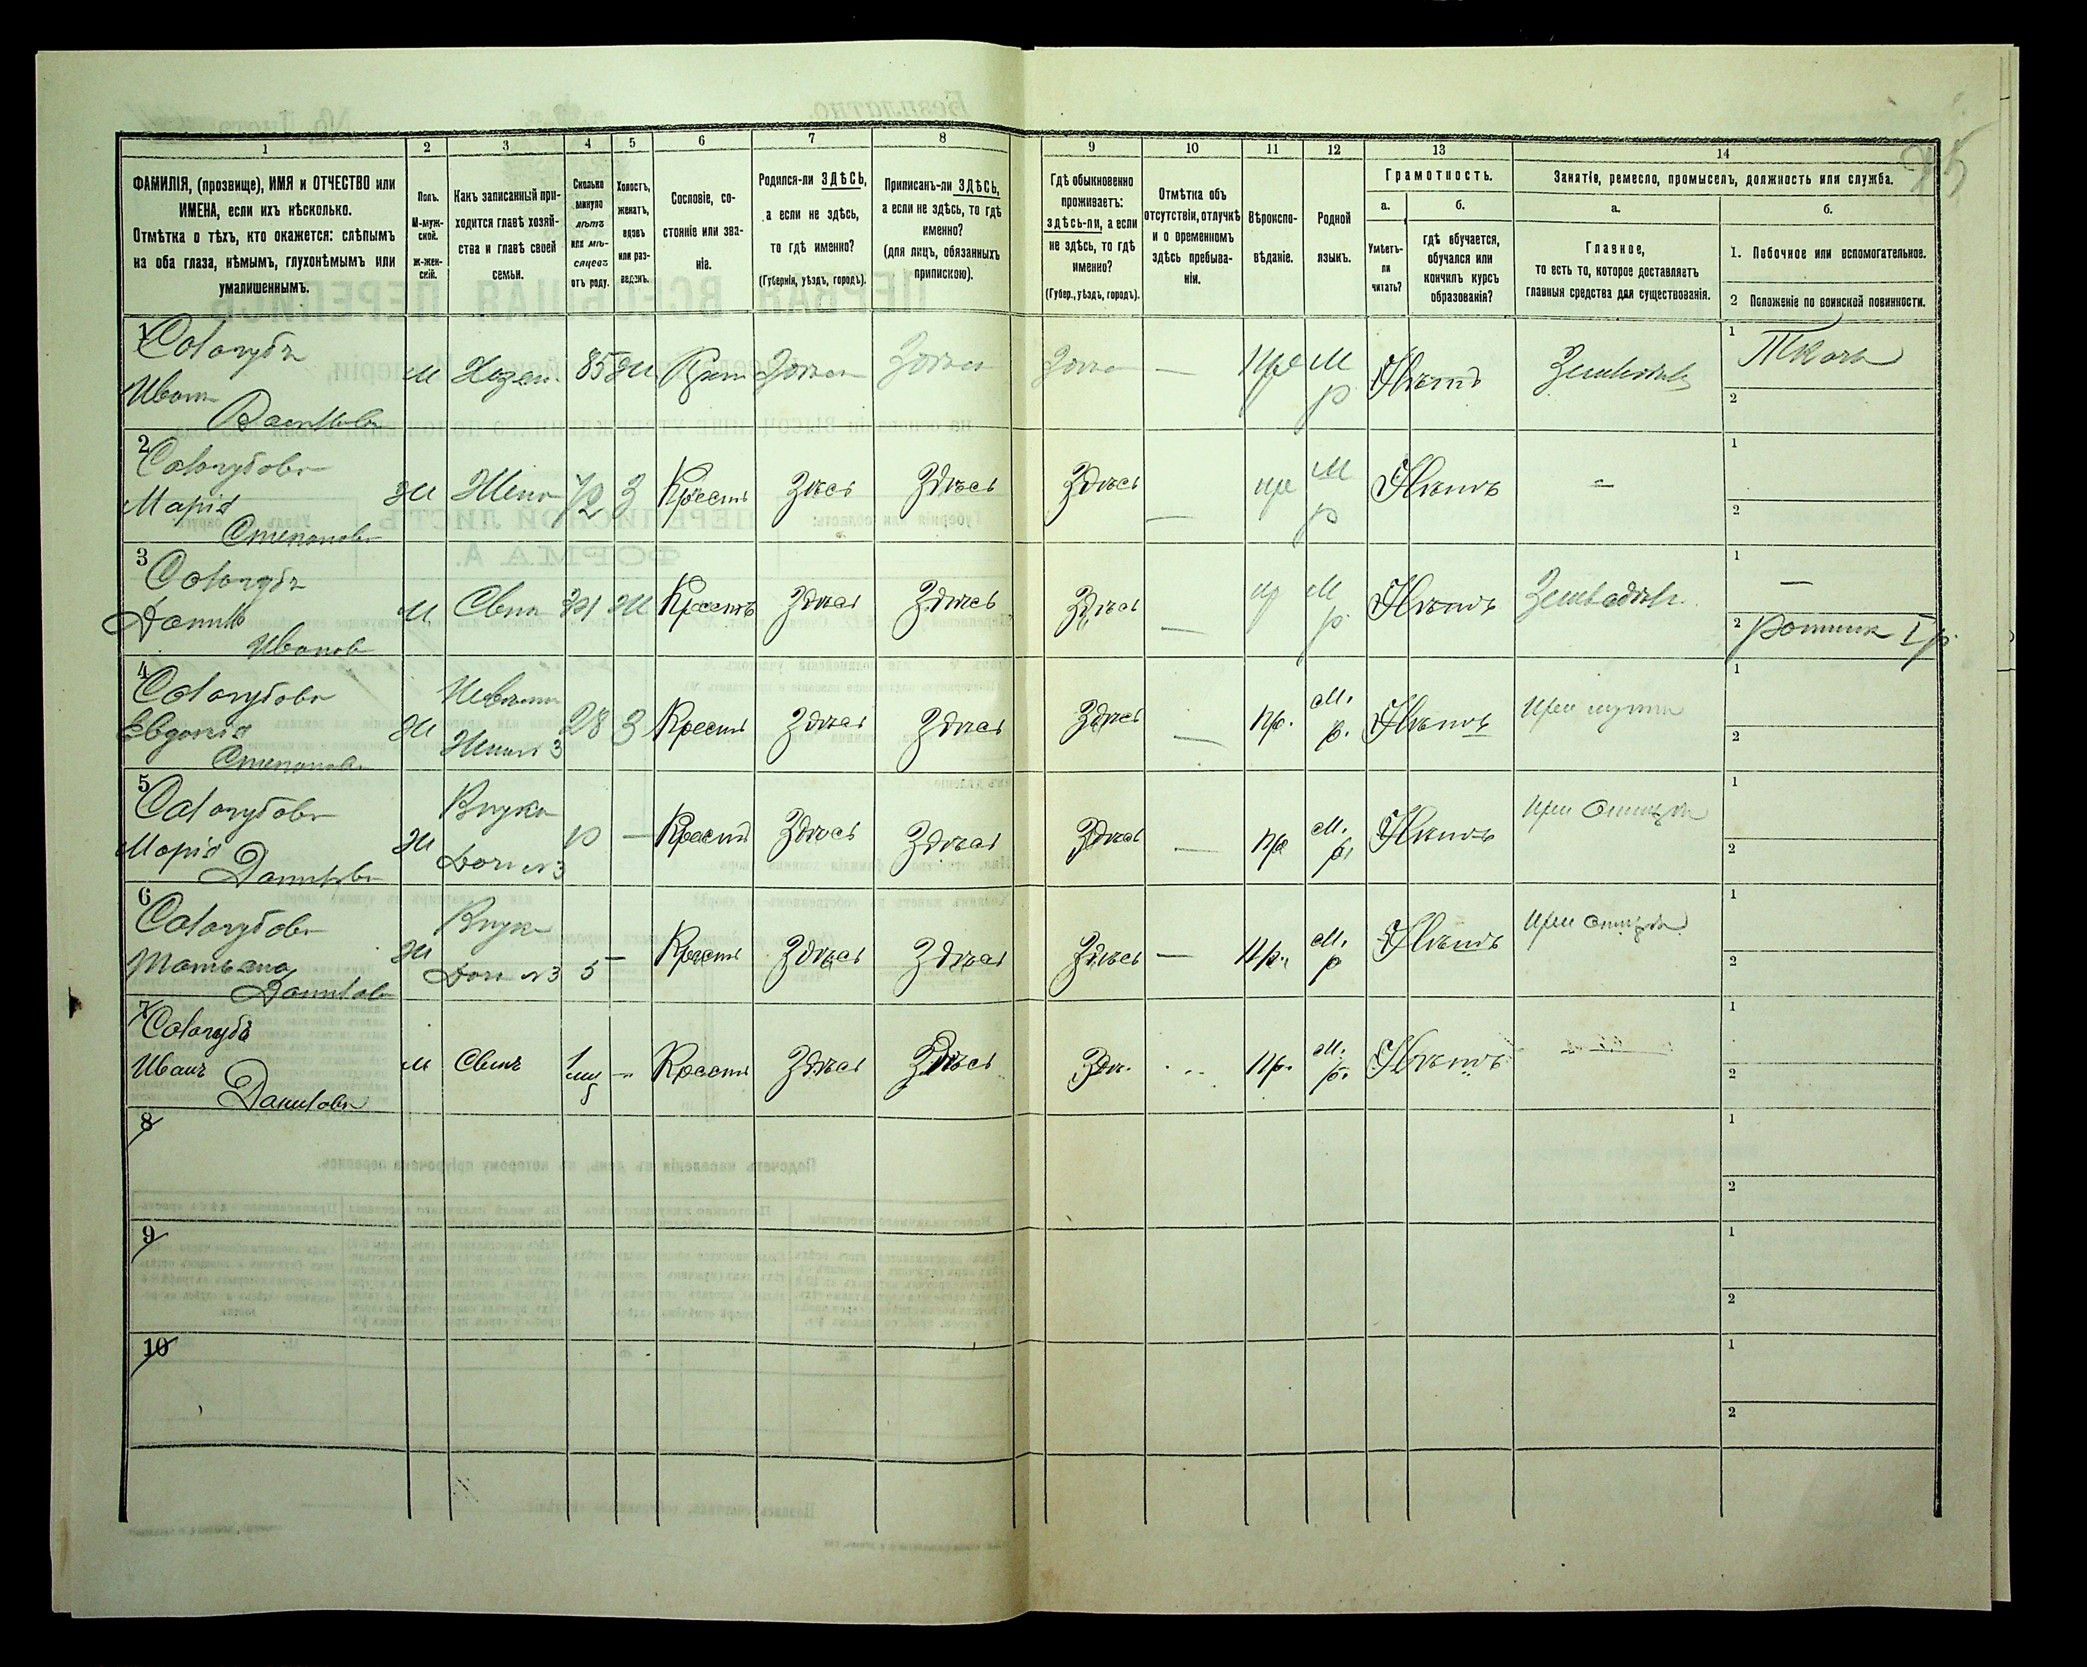 85
1
2
3
4
5
6
7
8
9
10
11
12
13
14
ФАМИЛІЯ, (прозвище), ИМЯ и ОТЧЕСТВО или
ИМЕНА, если ихъ нѣсколько.
Отмѣтка о тѣхъ, кто окажется: слѣпымъ
на оба глаза, нѣмымъ, глухонѣмымъ или
умалишеннымъ.
Полъ.
М-муж-
ской.
Ж-жен-
скій.
Какъ записанный при-
ходится главѣ хозяй-
ства и главѣ своей
семьи.
Сколько
минуло
лѣтъ
или мѣ-
сяцевъ
отъ роду.
Холостъ,
женатъ,
вдовъ
или раз-
веденъ.
Сословіе, со-
стояніе или зва-
ніе.
Родился-ли ЗДѢСЬ,
а если не здѣсь,
то гдѣ именно?
(Губернія, уѣздъ, городъ).
Приписанъ-ли ЗДѢСЬ,
а если не здѣсь, то гдѣ
именно?
(для лицъ, обязанныхъ
припискою).
Гдѣ обыкновенно
проживаетъ:
ЗДѢСЬ-ЛИ, а если
не здѣсь, то гдѣ
именно?
(Губер., уѣздъ, городъ).
Отмѣтка объ
отсутствіи, отлучкѣ
и о временномъ
здѣсь пребыва-
ніи.
Вѣроиспо-
вѣданіе.
Родной
языкъ.
Грамотность.
а.
Умѣетъ-
ли
читать?
б.
гдѣ обучается,
обучался или
кончилъ курсъ
образованія?
Занятіе, ремесло, промыселъ, должность или служба.
а.
Главное,
то есть то, которое доставляетъ
главныя средства для существованія.
б.
1. Побочное или вспомогательное.
2 Положеніе по воинской повинности.
1
Сологубъ
Иванъ
Василіевъ
М Хозяин 85 Ж Крест Здѣсь Здѣсь Здѣсь — Пра М
р
Нѣтъ Земледѣл
1 Ткачъ
2
2
Сологубова
Марія
Степанова
Ж Жена 72 З Крестъ Здѣсь Здѣсь Здѣсь — пра М
р
Нѣтъ —
1
2
3
Сологубъ
Данило
Ивановъ
М. Сынъ 31 Ж Крестъ Здѣсь Здѣсь Здѣсь — пр М
р.
Нѣтъ Земледѣл.
1 —
2 Ратник I р.
4
Сологубова
Евдокія
Степанова
Ж Невѣстка
Жена № 3
28 З Крестъ Здѣсь Здѣсь Здѣсь — пр. М.
р.
Нѣтъ При мужѣ
1
2
5
Сологубова
Марія
Данилова
Ж Внука
Доч № 3
10 — Крестъ Здѣсь Здѣсь Здѣсь — пр М.
р.
Нѣтъ При отцѣ
1
2
6
Сологубова
Татьяна
Данилова
Ж Внука
Доч № 3
5 — Крестъ Здѣсь Здѣсь Здѣсь — пр. М.
р
Нѣтъ При отцѣ
1
2
7
Сологубъ
Иванъ
Даниловъ
М Сынъ 1
— Крестъ Здѣсь Здѣсь Здѣ. пр. М.
р.
Нѣтъ
1
2
8
1
2
9
1
2
10
1
2